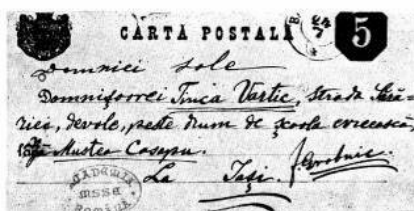 CARTA POSTALĂ
5
24
7
Domniei sole
Domnișoarei Tinca Vartic, strada
devole, peste drum de școola evreească,
lîngă Mustea Casapu.
La Iași. grabnic.
ACADEMIA
MSSE
ROMÂNĂ